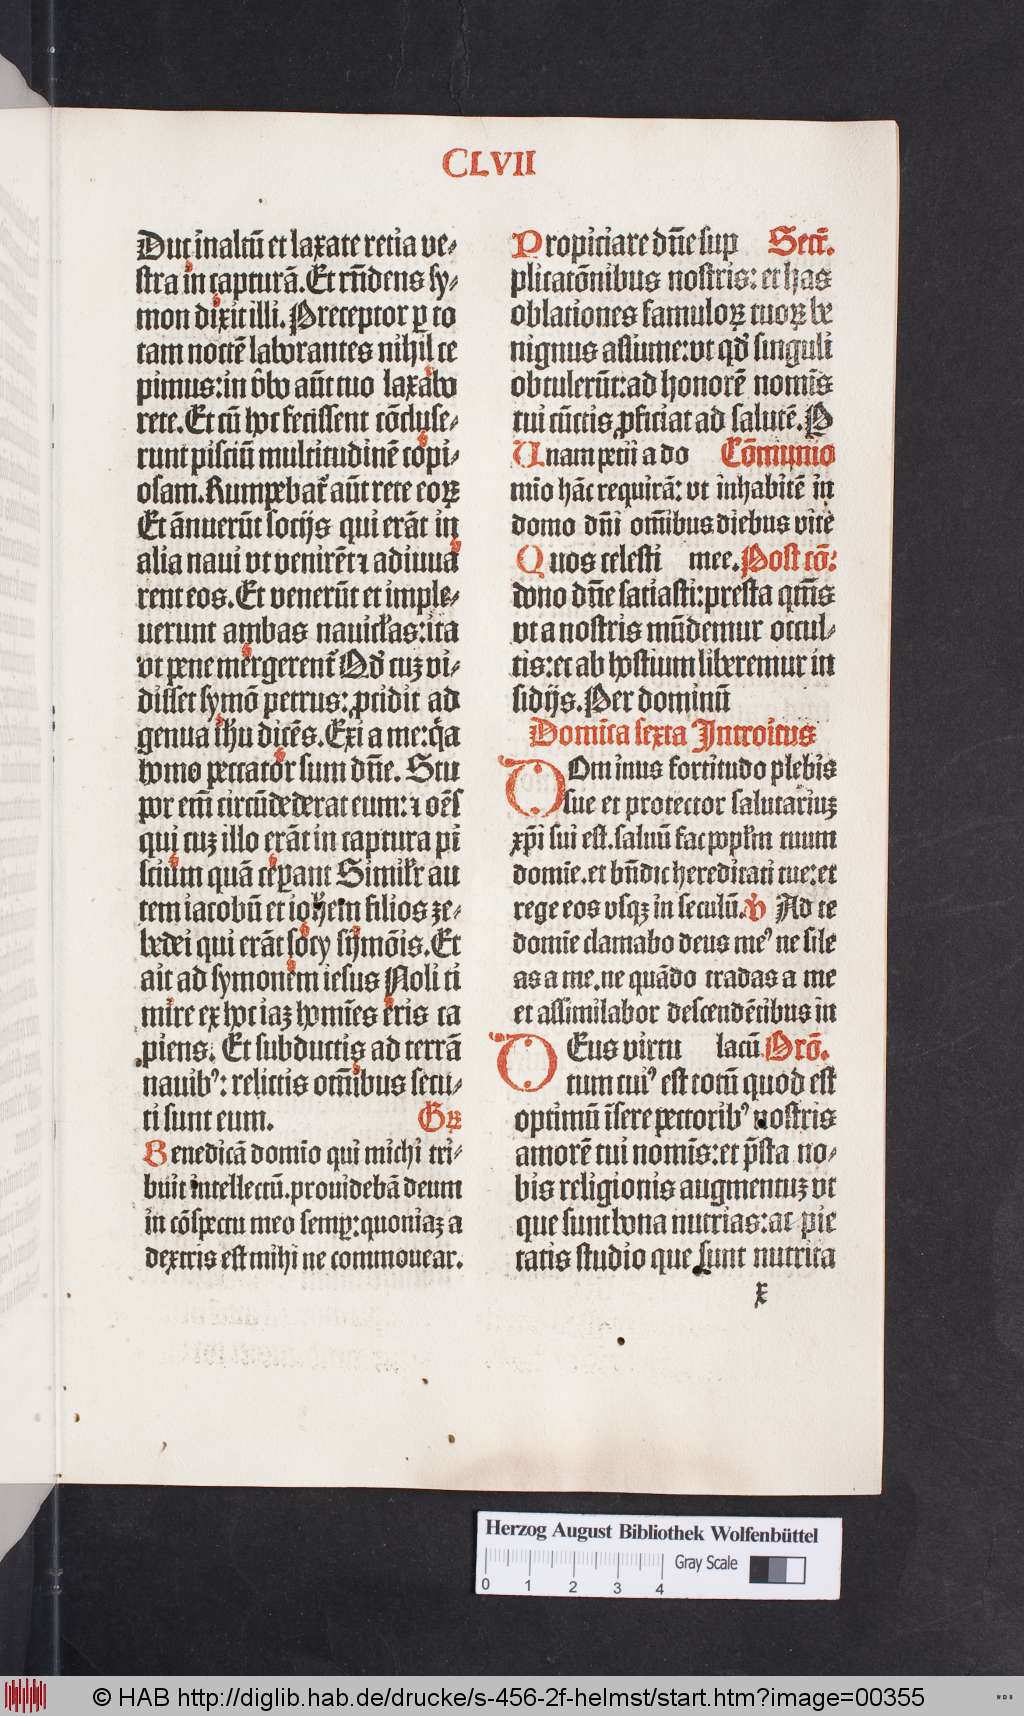 CLVII
Duc in altū et laxate retia ve-
stra in capturā. Et rn̄dens sy-
mon dixit illi. Preceptor ꝑ to
tam noctē laborantes nihil ce
pimus: in v̄bo aūt tuo laxabo
rete. Et cū hoc fecissent cōcluse-
runt pisciū multitudinē copi-
osam. Rumpebat᷑ aūt rete eoꝝ
Et ānuerūt socijs qui erāt in
alia naui vt venirēt ⁊ adiuua
rent eos. Et venerūt et imple-
uerunt ambas nauicl̓as: ita
vt pene mergerent᷑ Qđ cuꝫ vi-
disset symō petrus: ꝓcidit ad
genua ih̄u dicēs. Exi a me: q̓a
homo peccator sum dn̄e. Stu
por em̄ circūdederat eum: ⁊ oēs
qui cuꝫ illo erāt in captura pi
scium quā ceꝑant Simil̓r au
tem iacobū et ioh̄em filios ze-
bedei qui erāt socij symōis. Et
ait ad symonem iesus Noli ti
mere ex hoc iaꝫ homīes eris ca
piens. Et subductis ad terrā
nauibꝰ: relictis om̄ibus secu-
ti sunt eum. Gꝝ
Benedicā domīo qui michi tri-
buit intellectū. prouidebā deum
in cōspectu meo semꝑ: quoniaꝫ a
dextris est mihi ne commouear.
Propiciare dn̄e sup Secr̄.
plicatōnibus nostris: et has
oblationes famuloꝝ tuoꝝ be
nignus assume: vt qđ singuli
obtulerūt: ad honorē nomīs
tui cūctis ꝓficiat ad salutē. P
Unam petij a do Cōmunio
mīo hāc requirā: vt inhabitē in
domo dn̄i om̄ibus diebus vite
Quos celesti mee. Post cō:
dono dn̄e satiasti: presta qm̄s
vt a nostris mūdemur occul-
tis: et ab hostium liberemur in
sidijs. Per dominū
Domīca sexta Introitus
Dominus fortitudo plebis
sue et protector salutariuꝫ
xp̄i sui est. saluū fac popl̓m tuum
domīe. et bn̄dic hereditati tue: et
rege eos vsqꝫ in seculū. V Ad te
domīe clamabo deus meꝰ ne sile
as a me. ne quādo tradas a me
et assimilabor descendētibus in
Deus virtu lacū Orō.
tum cuiꝰ est totū quod est
optimū īsere pectoribꝰ nostris
amorē tui nomīs: et p̄sta no-
bis religionis augmentuꝫ vt
que sunt bona nutrias: ac pie
tatis studio que sunt nutrita
x
Herzog August Bibliothek Wolfenbüttel
Gray Scale
0 1 2 3 4
© HAB http://diglib.hab.de/drucke/s-456-2f-helmst/start.htm?image=00355